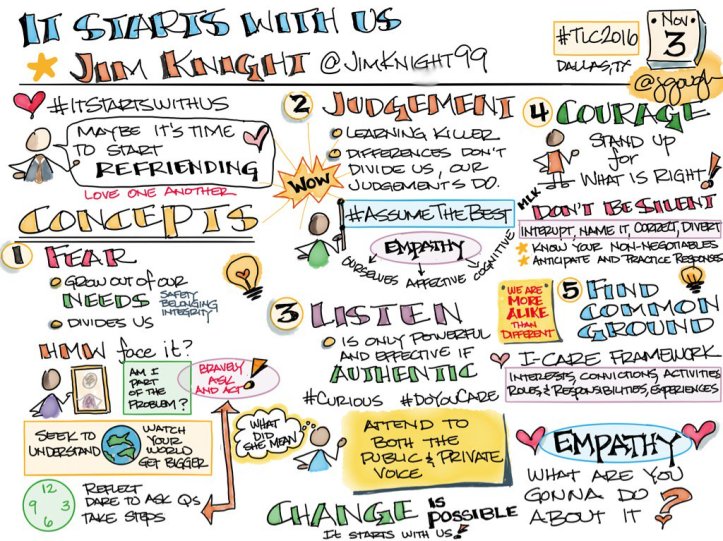 IT STARTS WITH US
JIM KNIGHT @JIMKNIGHT99
#TLC2016
DALLAS, TX
NOV
3
#ITSTARTSWITHUS
MAYBE IT'S TIME
TO START
REFRIENDING
LOVE ONE ANOTHER
CONCEPTS
1 FEAR
GROW OUT OF OUR
NEEDS
SAFETY
BELONGING
INTEGRITY
DIVIDES US
HMW face it?
AM I
PART
OF THE
PROBLEM?
BRAVELY
ASK
AND ACT!
SEEK TO
UNDERSTAND
WATCH
YOUR
WORLD
GET BIGGER
12
9 3
6
REFLECT
DARE TO ASK QS
TAKE STEPS
2 JUDGEMENT
LEARNING KILLER
DIFFERENCES DON'T
DIVIDE US, OUR
JUDGEMENTS DO.
WOW
#ASSUMETHEBEST
EMPATHY
OURSELVES AFFECTIVE COGNITIVE
3 LISTEN
IS ONLY POWERFUL
AND EFFECTIVE IF
AUTHENTIC
#CURIOUS #DOYOUCARE
WHAT
DID
SHE MEAN
ATTEND TO
BOTH THE
PUBLIC & PRIVATE
VOICE
CHANGE IS POSSIBLE
IT STARTS WITH US!
4 COURAGE
STAND UP
for
WHAT IS RIGHT!
MLK
DON'T BE SILENT
INTERUPT, NAME IT, CORRECT, DIVERT
KNOW YOUR NON-NEGOTIABLES
ANTICIPATE AND PRACTICE RESPONSES
WE ARE
MORE
ALIKE
THAN
DIFFERENT
5 FIND
COMMON
GROUND
I-CARE FRAMEWORK
INTERESTS, CONVICTIONS, ACTIVITIES
ROLES & RESPONSIBILITIES, EXPERIENCES
EMPATHY
WHAT ARE YOU
GONNA DO
ABOUT IT?